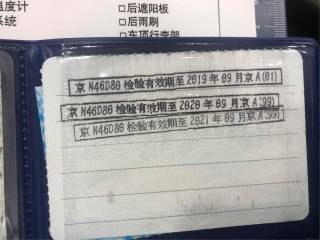 温度计
系统
□后遮阳板
□后雨刷
□车顶行李架
京 N46D80 检验有效期至 2019 年 09 月京 A(01)
京 N46D80 检验有效期至 2020 年 09 月京 A(99)
京 N46D80 检验有效期至 2021 年 09 月京 A(99)